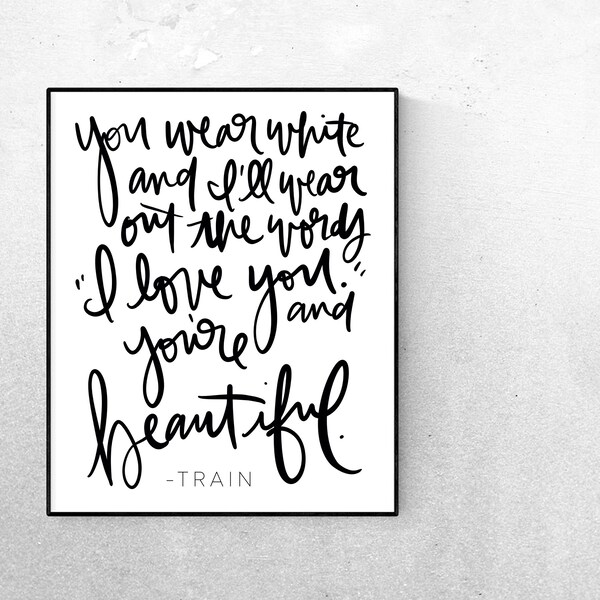 you wear white
and I'll wear
out the words
"I love you."
and
you're
beautiful.
-TRAIN